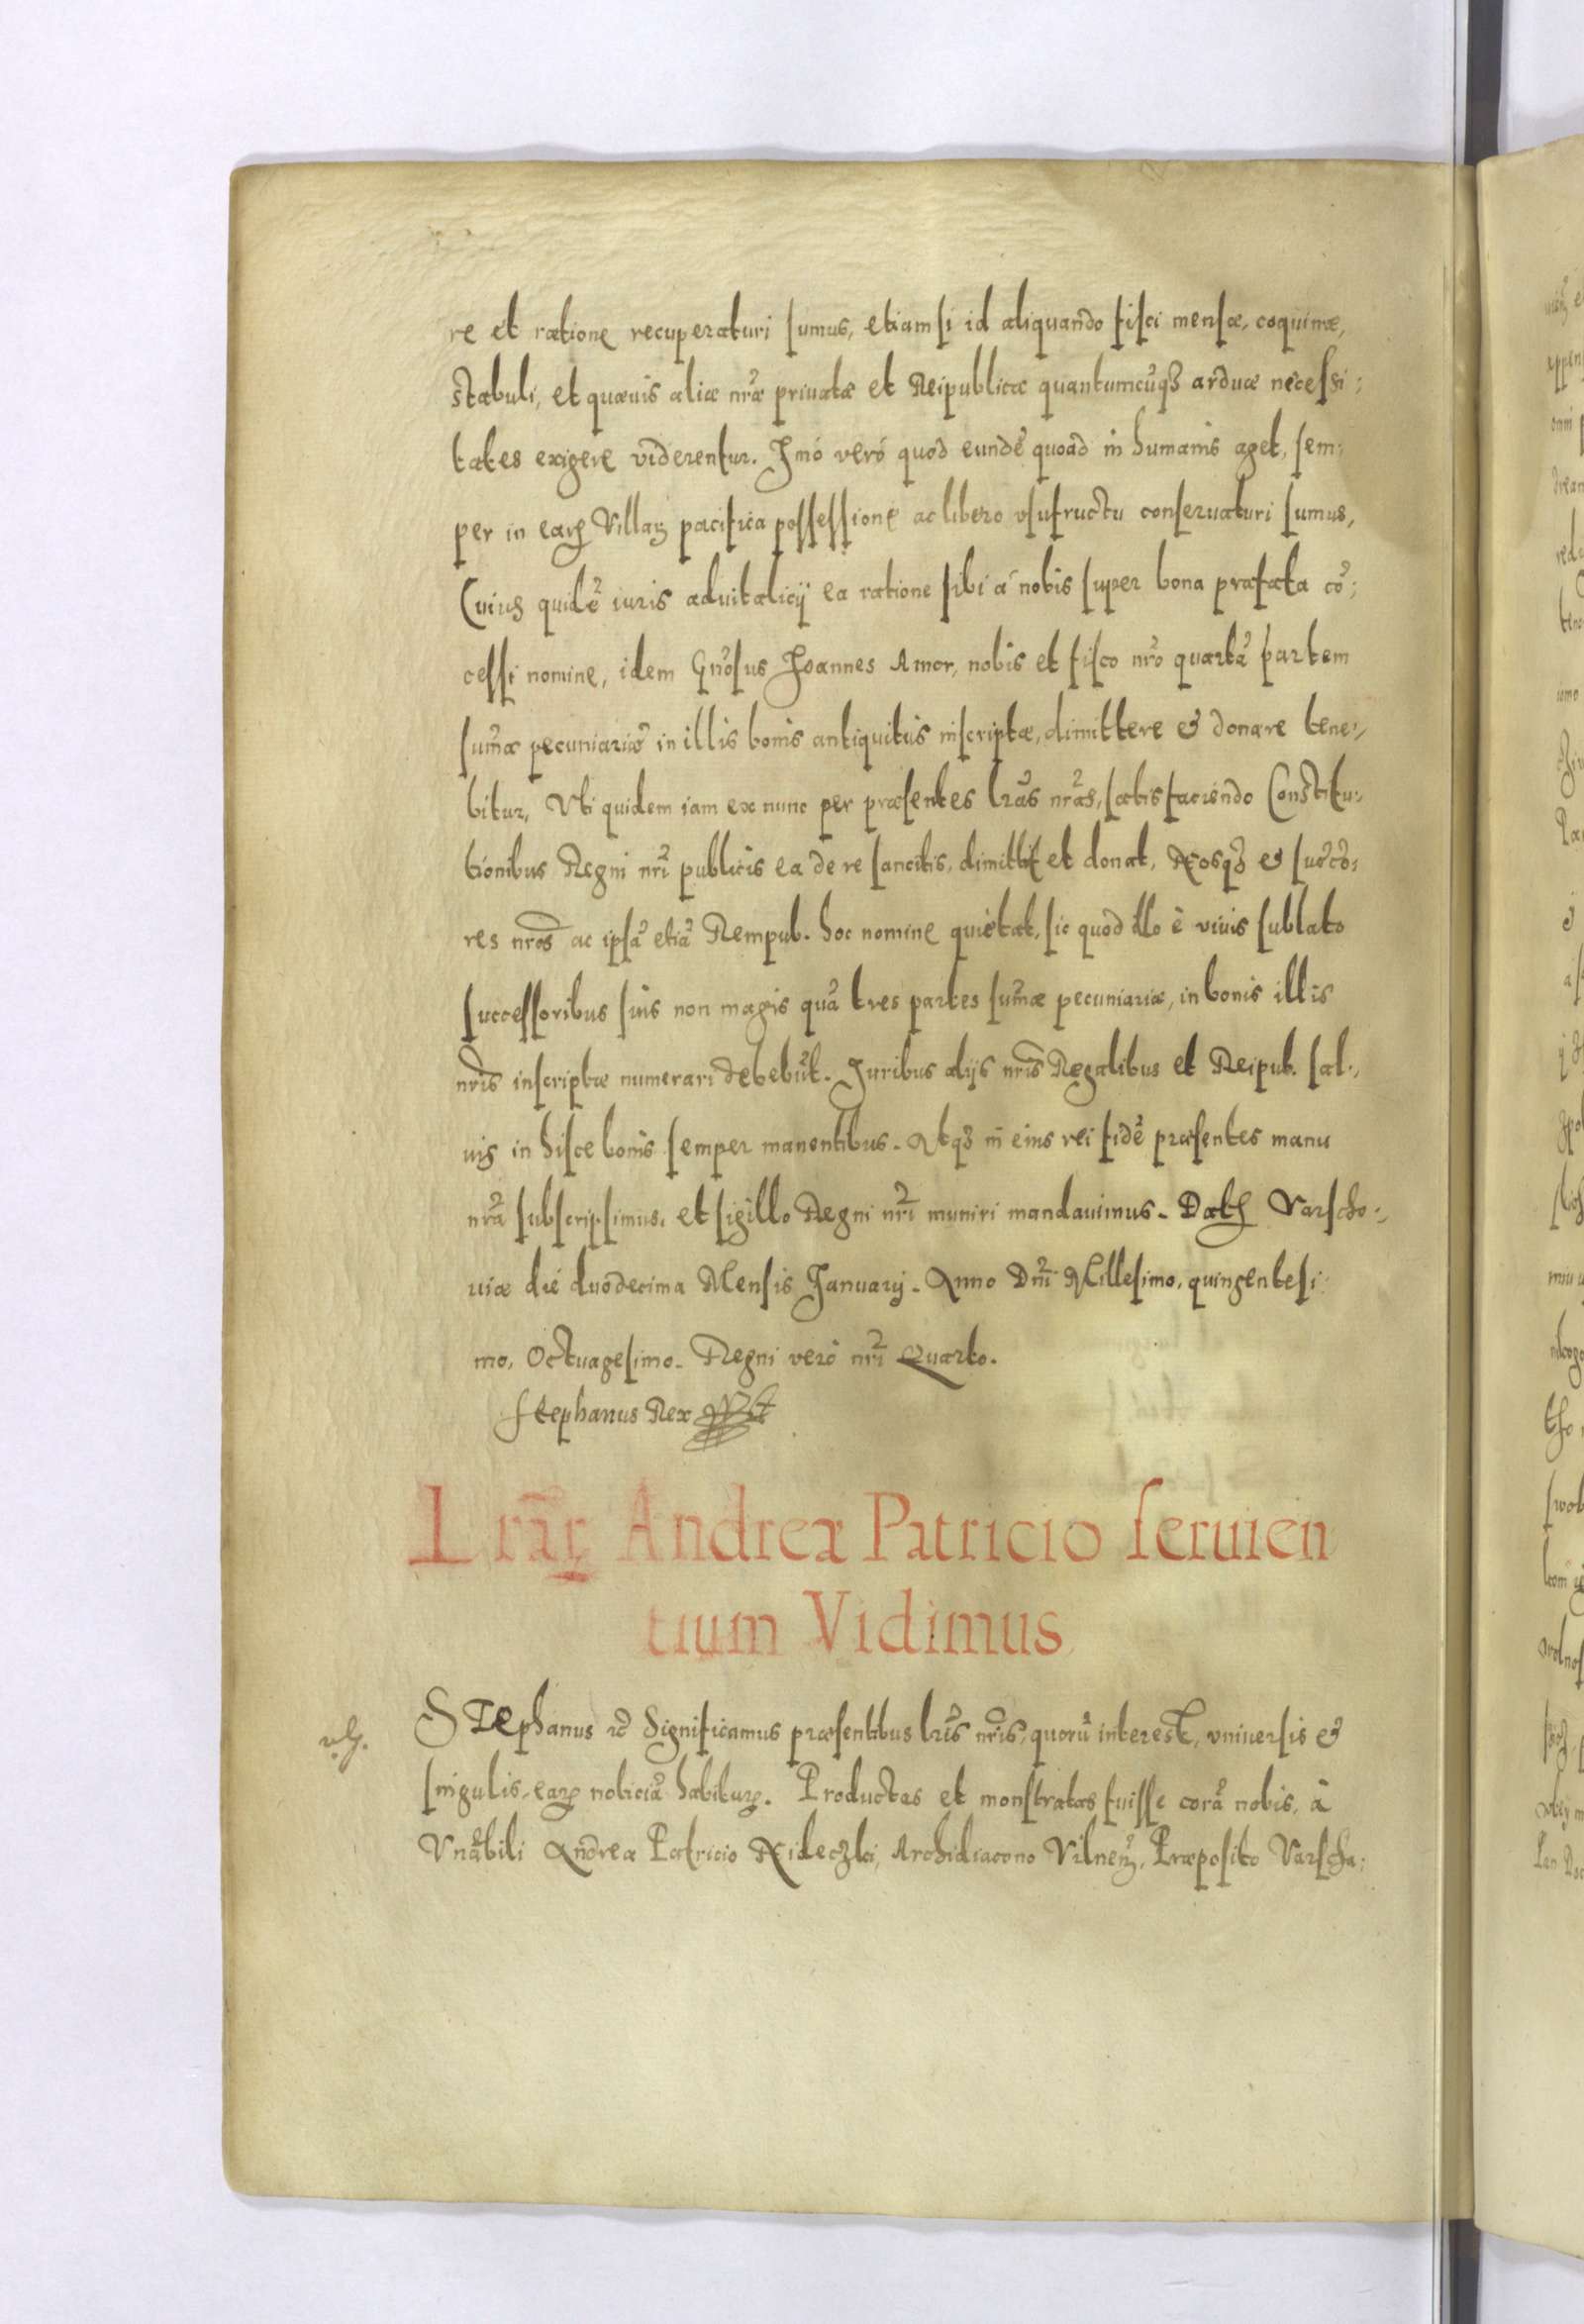 re et ratione recuperaturi sumus, etiamsi id aliquando fisci mensæ, coquinæ,
stabuli, et quævis aliæ nr̃æ privatæ et Reipublicæ quantumcũqȝ arduæ necessi:
tates exigere viderentur. Imò verò quod eundẽ quoad in humanis aget, sem:
per in earꝝ Villarꝝ pacifica possessione ac libero vsufructu conseruaturi sumus,
Cuius quidẽ iuris aduitalicÿ ea ratione sibi á nobis super bona præfata cõ:
cessi nomine, idem Gñosus Joannes Amor, nobis et fisco nr̃o quartã partem
sum̃æ pecuniariæ in illis bonis antiquitùs inscriptæ, dimittere & donare tene:
bitur, Vti quidem iam ex nunc per præsentes lr̃as nr̃as, satisfaciendo Constitu:
tionibus Regni nr̃i publicis ea de re sancitis, dimittit et donat, Nosqȝ & sucõ:
res nr̃os ac ipsã etiã Rempub. hoc nomine quietat, sic quod illo è viuis sublato
successoribus suis non magis quã tres partes sum̃æ pecuniariæ, in bonis illis
nr̃is inscriptæ numerari debebũt. Juribus alÿs nr̃is Regalibus et Reipub. sal:
uis in hisce bonis semper manentibus. Atqȝ in eius rei fidẽ præsentes manu
nr̃a subscripsimus, et sigillo Regni nr̃i muniri mandauimus. Datꝭ Varscho:
uiæ die duodecima Mensis Januarÿ. Anno Dñi Millesimo, quingentesi:
mo, Octuagesimo. Regni verò nr̃i Quarto.
Stephanus Rex
Lr̃arꝝ Andreæ Patricio seruien
tium Vidimus
STephanus rc̃ Significamus præsentibus lr̃is nr̃is, quorũ interest, vniuersis &
singulis, earꝝ noticiã habiturꝝ. Productas et monstratas fuisse corã nobis, à
Vnãbili Andrea Patricio Nideczki, Archidiacono Vilneñ, Præposito Varscha: